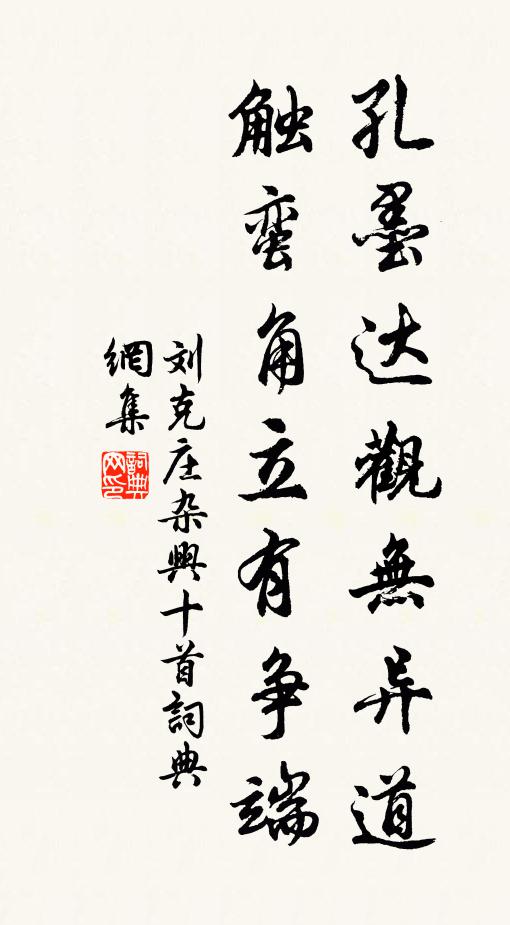 孔墨达觀無异道
触蛮角立有争端
刘克庄杂興十首詞典
網集
詞典網印